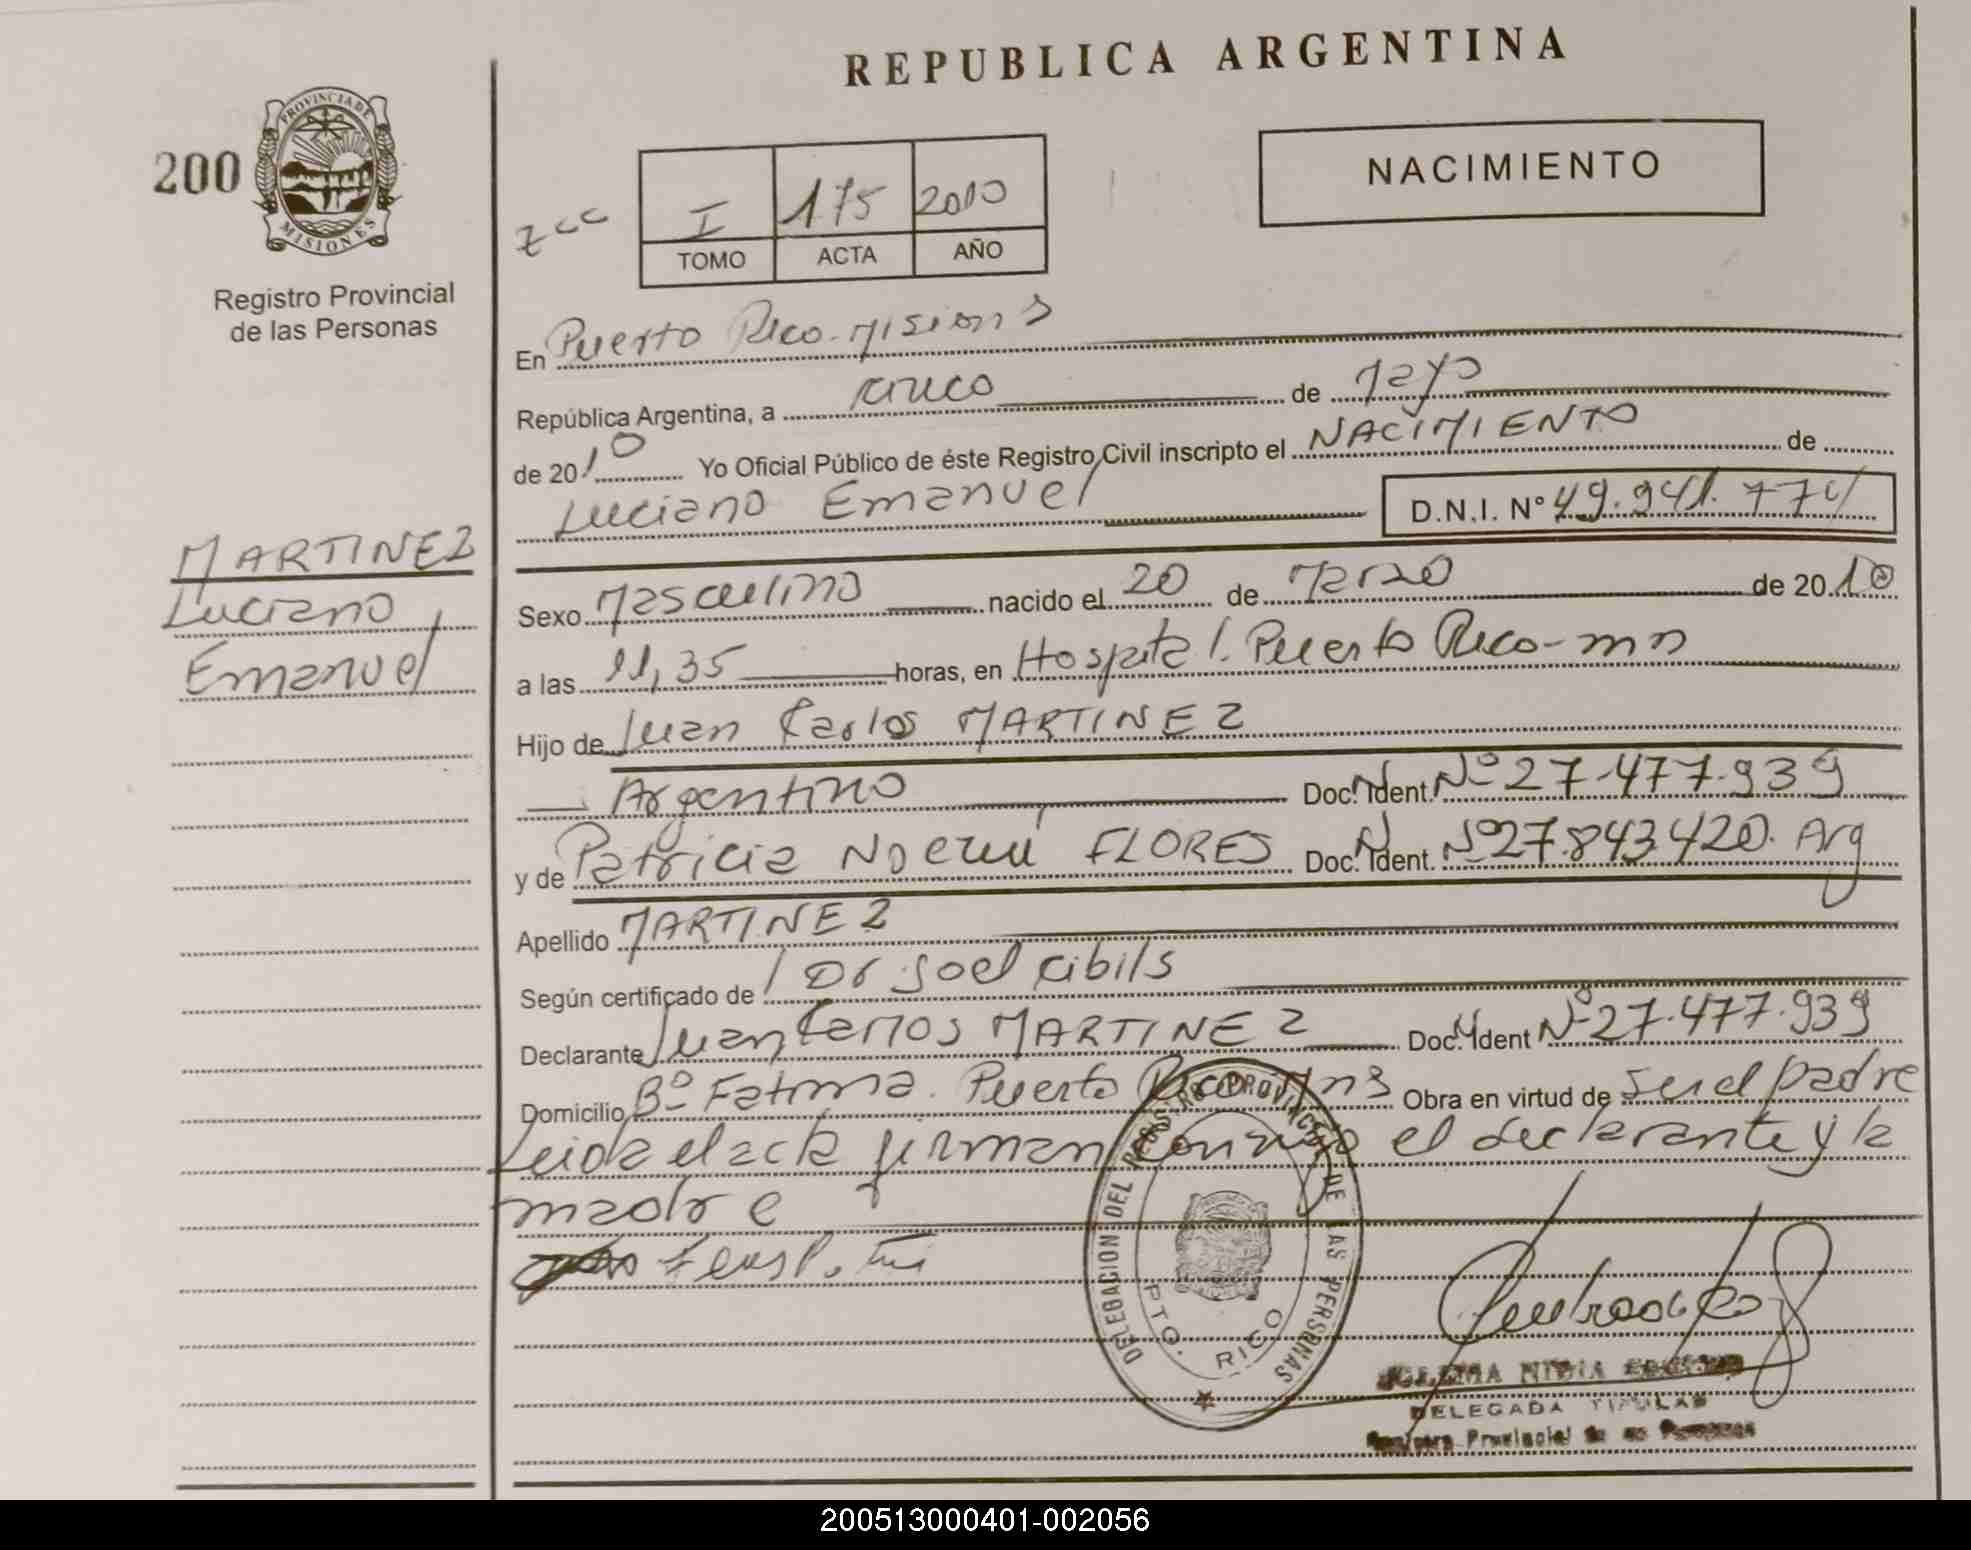 REPUBLICA ARGENTINA
200
PROVINCIA DE
MISIONES
Registro Provincial
de las Personas
NACIMIENTO
I 175 2010
TOMO ACTA AÑO
En Puerto Rico-Misiones
República Argentina, a cinco de Mayo
de 2010 Yo Oficial Público de éste Registro Civil inscripto el NACIMIENTO de
Luciano Emanuel D.N.I. Nº 49.941.774
MARTINEZ
Luciano
Emanuel
Sexo Masculino nacido el 20 de Marzo de 2010
a las 11,35 horas, en Hospital. Puerto Rico-mns
Hijo de Juan Carlos MARTINEZ
Argentino Doc. Ident. Nº 27.477.939
y de Patricia Noemí FLORES Doc. Ident. Nº 27.843.420. Arg
Apellido MARTINEZ
Según certificado de Dr Joel Cibils
Declarante Juan Carlos MARTINEZ Doc. Ident Nº 27.477.939
Domicilio Bº Fatima. Puerto Rico Mns Obra en virtud de ser el padre
Leida el acta firman conmigo el declarante y la
madre
DELEGACION DEL REGISTRO PROVINCIAL DE LAS PERSONAS
PTO. RICO
DELEGADA TITULAR
Registro Provincial de las Personas
200513000401-002056